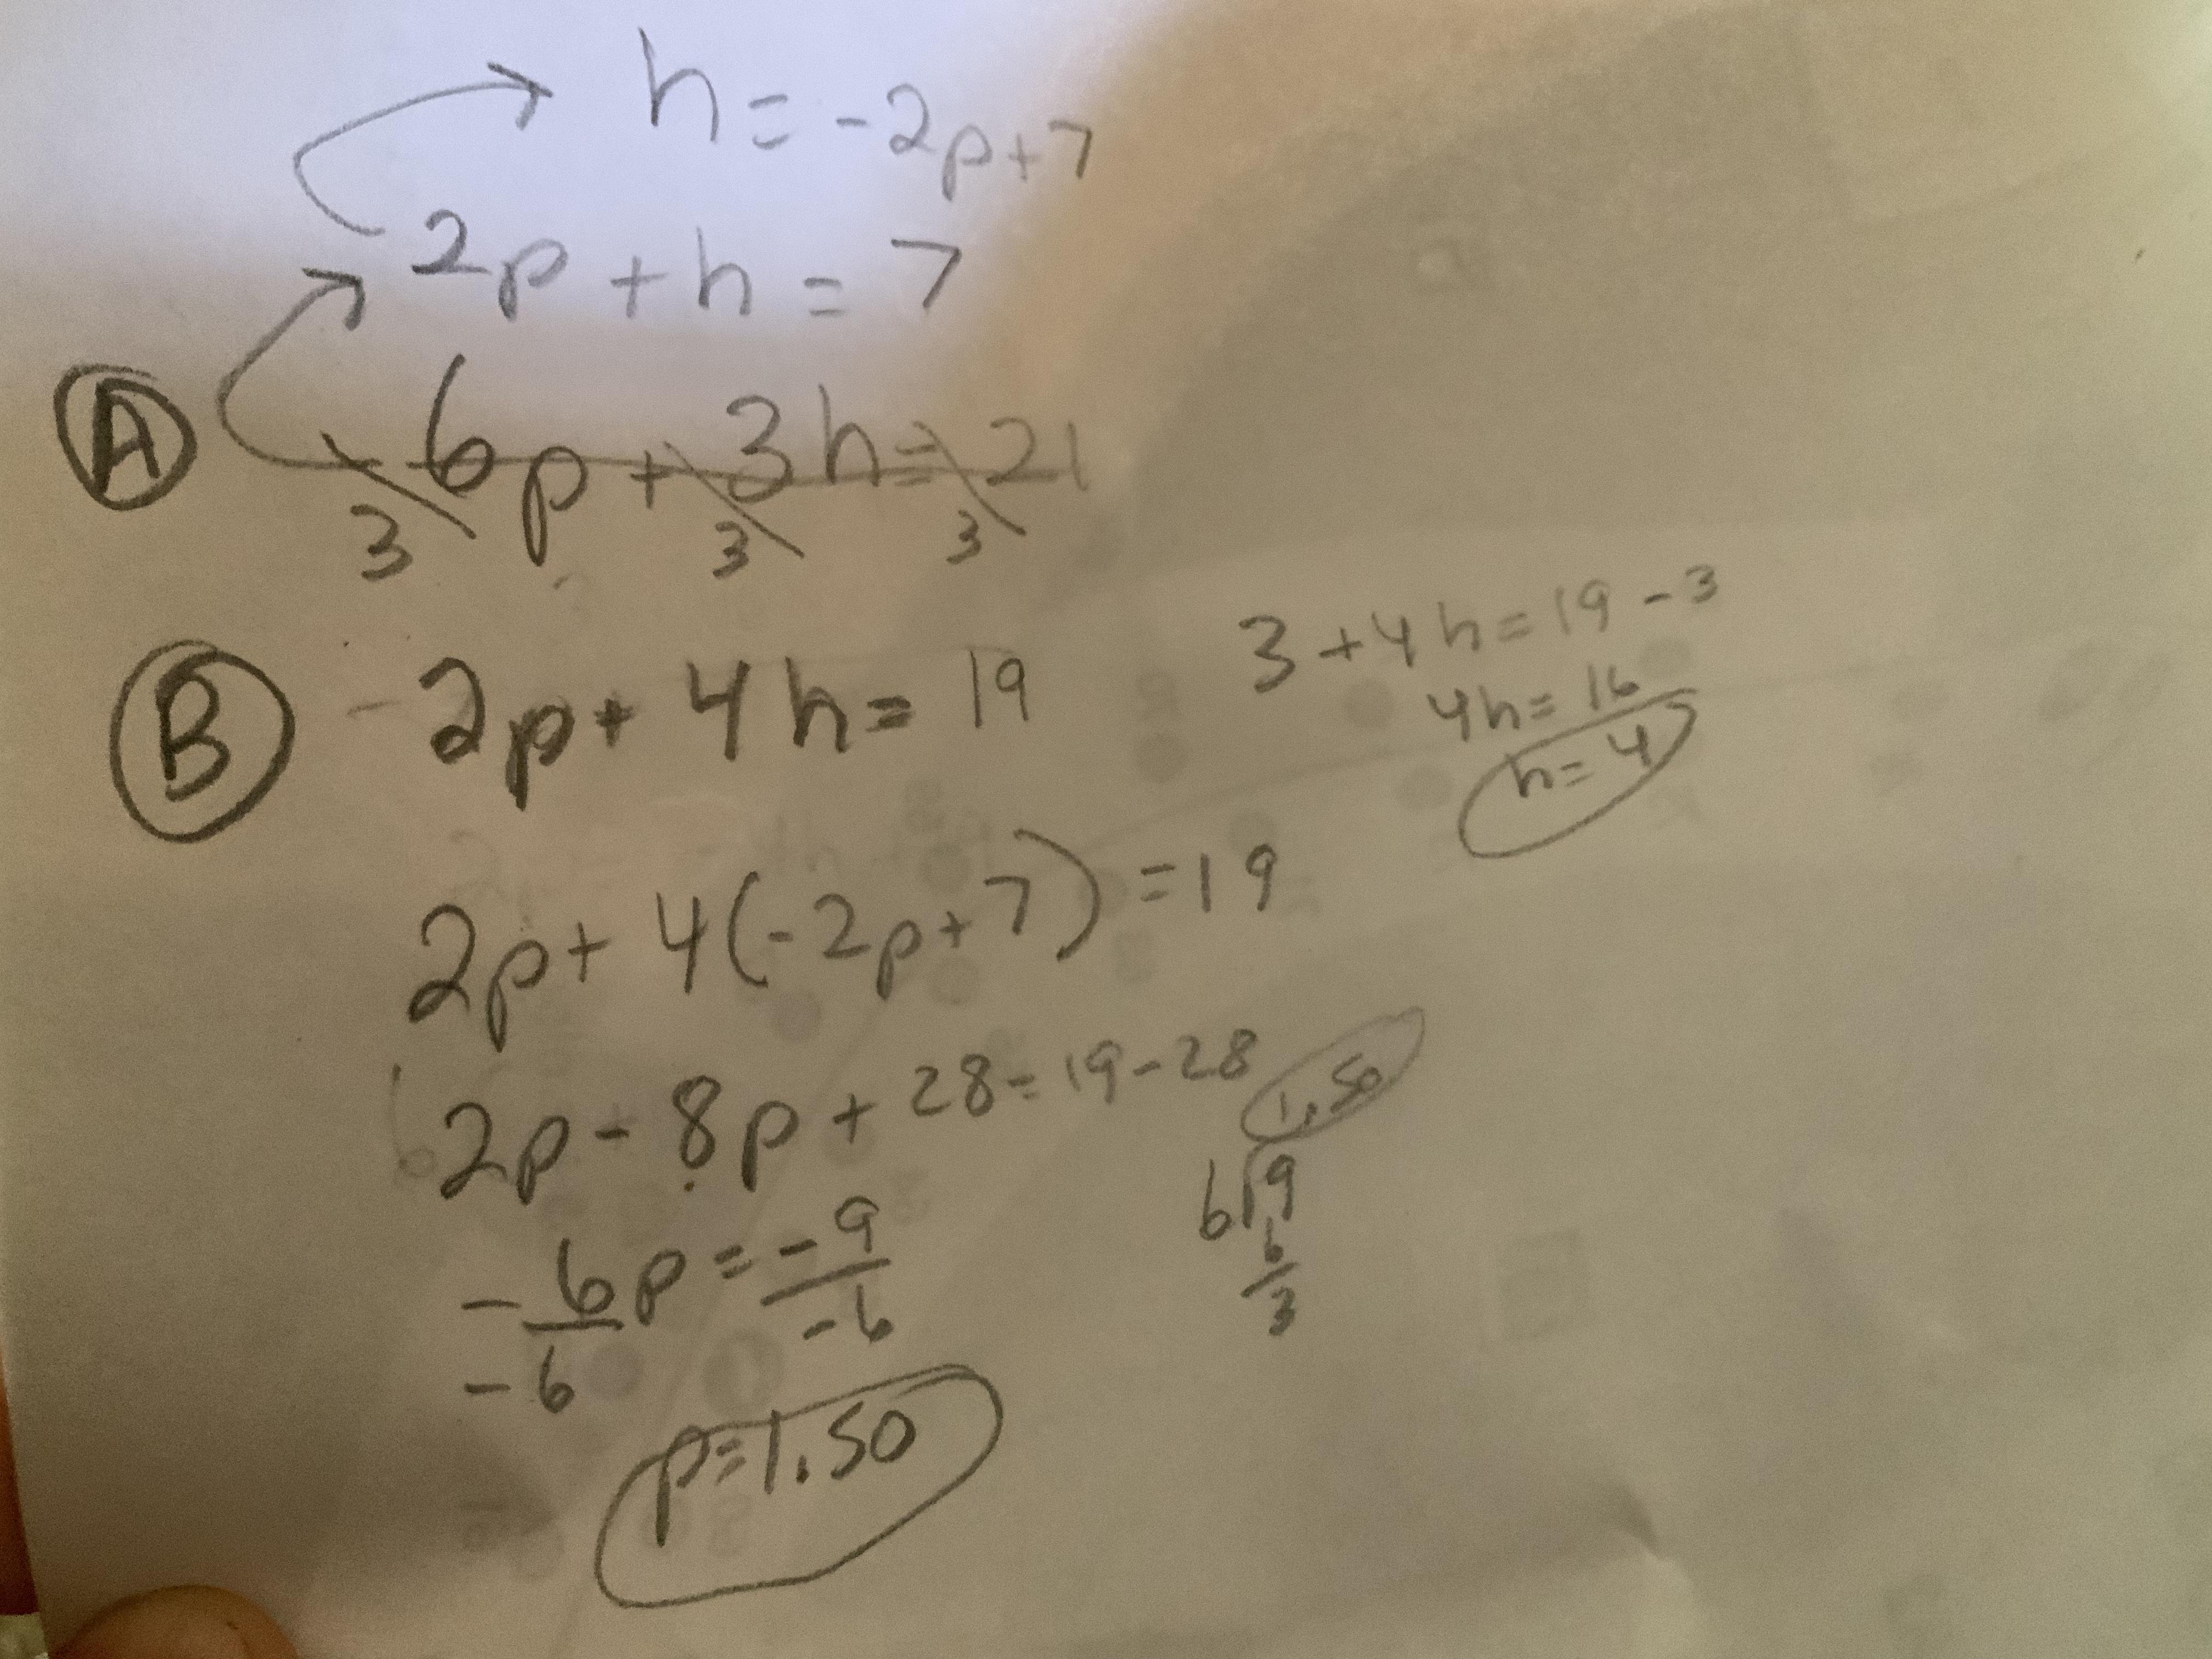 h = -2p+7
2p + h = 7
A 6p + 3h = 21
3 3 3
B 2p + 4h = 19
3 + 4h = 19 - 3
4h = 16
h = 4
2p + 4(-2p+7) = 19
2p - 8p + 28 = 19 - 28
1.50
6 9
6
3
-6p = -9
-6 -6
p = 1.50